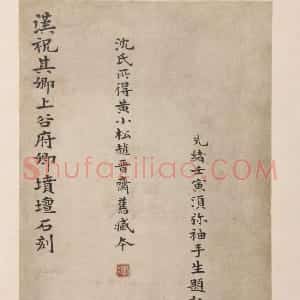 漢祝其卿上谷府卿墳壇石刻
沈氏所得黃小松趙晉齋舊藏夲
光緒壬寅須弥袖手生題
Shufaziliao.com